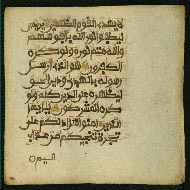 لا يهدي القوم الظلمين يريدون
ليطفئوا نور الله بأفوههم
والله متم نوره ولو كره
الكفرون هو الذي أرسل
رسوله بالهدى ودين الحق
ليظهره على الدين كله ولو
كره المشركون يأيها
الذين ءامنوا هل أدلكم على
تجرة تنجيكم من عذاب
أليم